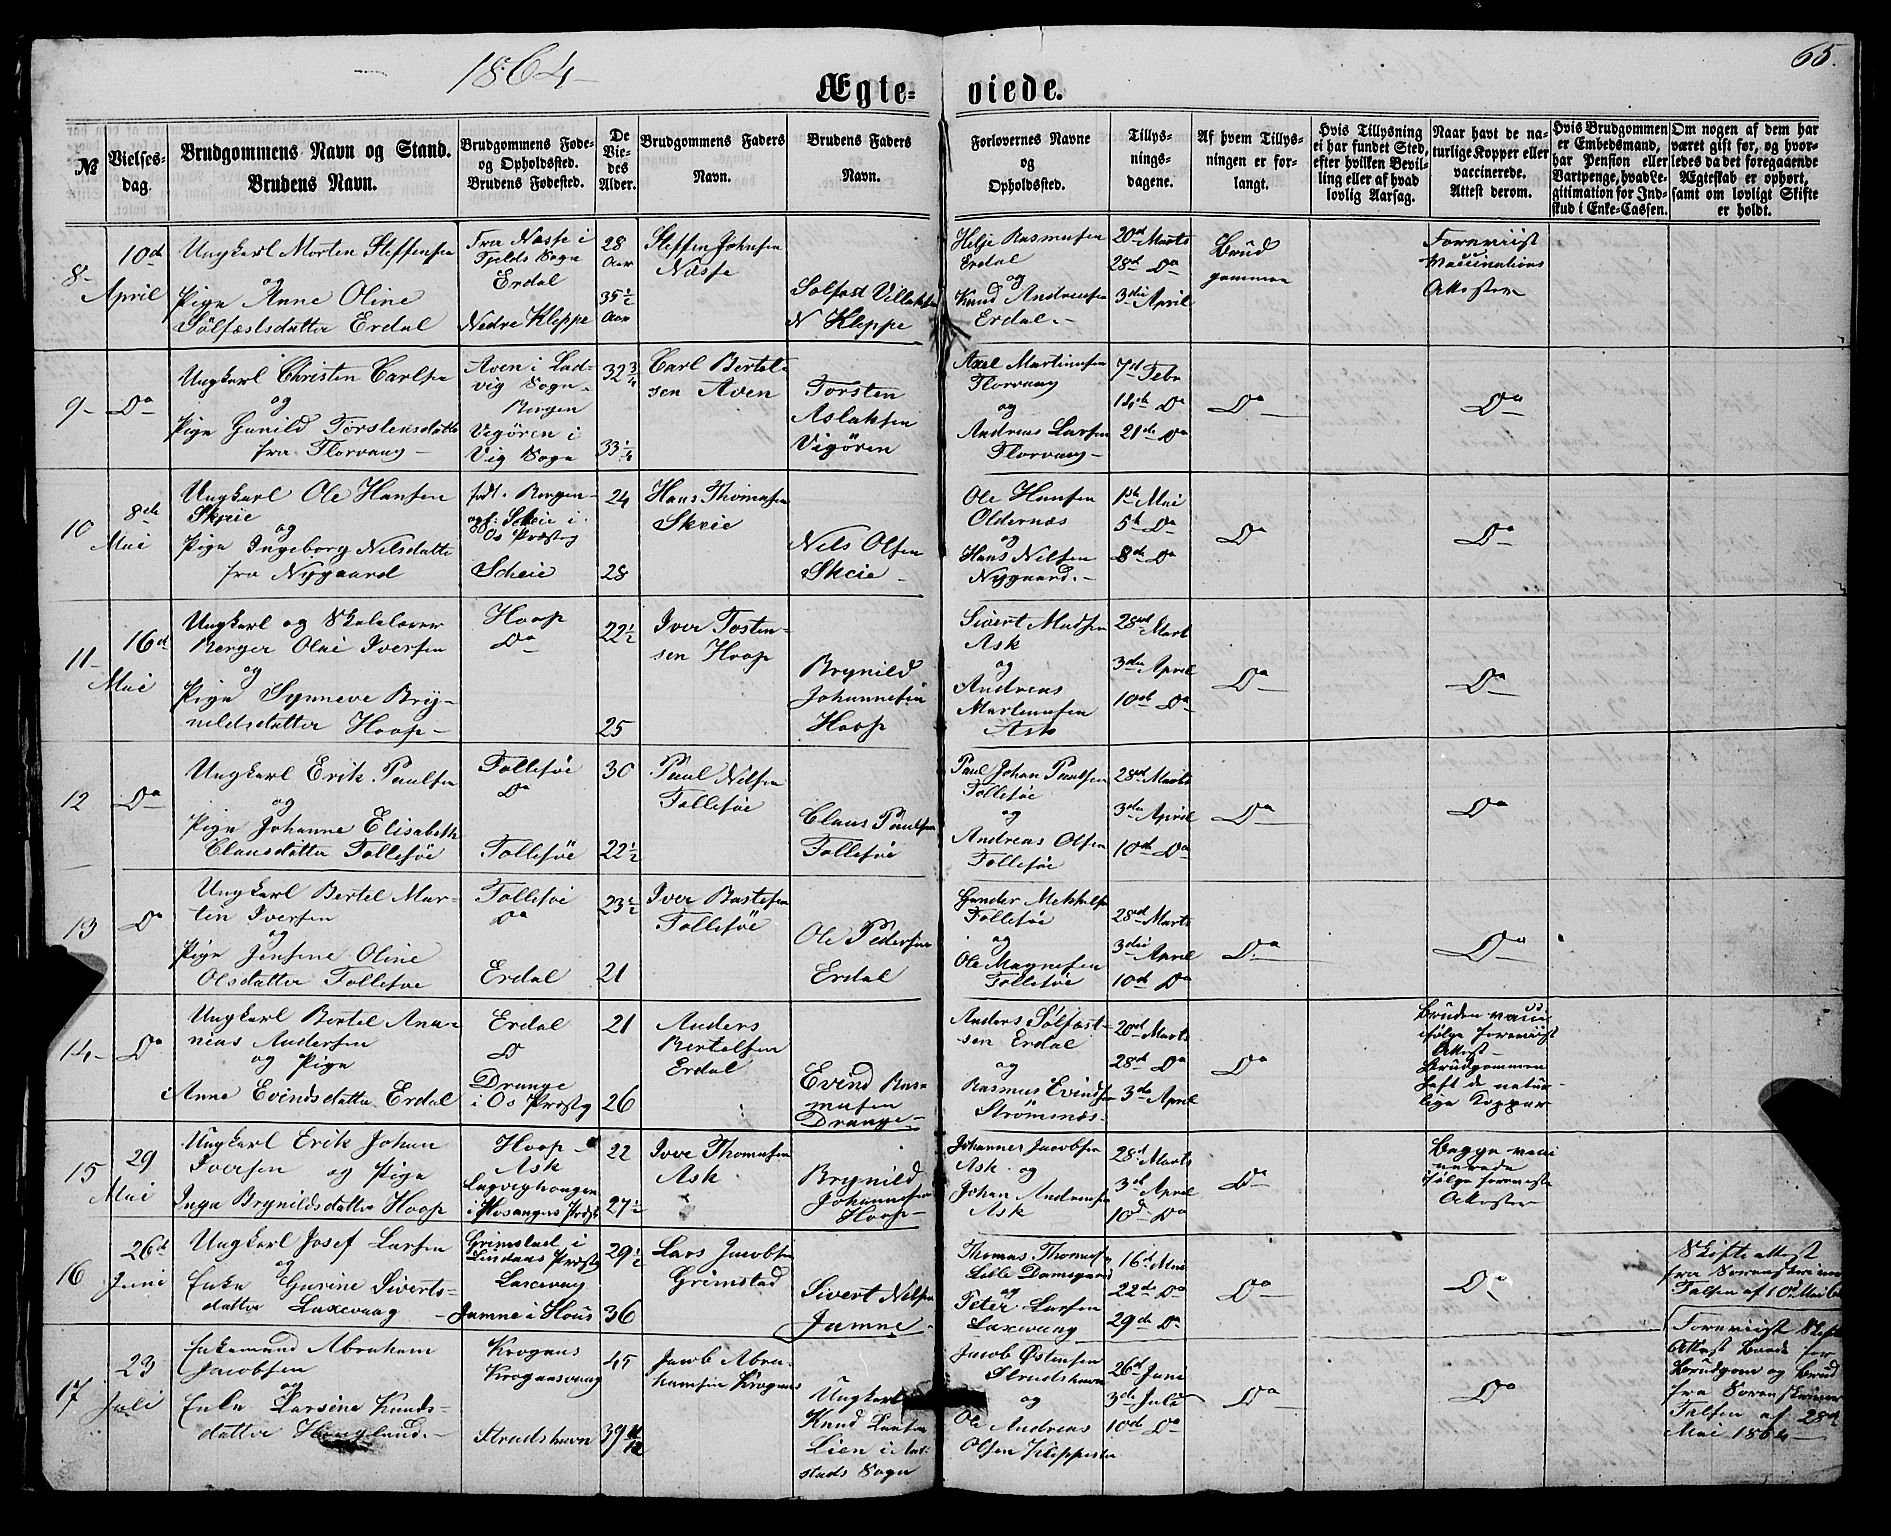 1864
65.
Ægteviede.
№
Vielsesdag.
Brudgommens Navn og Stand.
Brudens Navn.
Brudgommens Fødeog Opholdssted.
Brudens Fødested.
De Viedes Alder.
Brudgommens Faders Navn.
Brudens Faders Navn.
Forlovernes Navne
og
Opholdssted.
Tillysningsdagene.
Af hvem Tillysningen er forlangt.
Hvis Tillysning ei har fundet Sted, efter hvilken Bevilling eller af hvad lovlig Aarsag.
Naar havt de naturlige Kopper eller vaccinerede. Attest derom.
Hvis Brudgommen er Embedsmand, har Pension eller Vartpenge, hvad Legitimation for Indskud i Enke-Cassen.
Om nogen af dem har været gift før, og hvorledes da det foregaaende Ægteskab er ophørt, samt om lovligt Skifte er holdt.
8-
10de April
Ungkarl Morten Steffensen
og
Pige Anne Oline
Sølfæstsdatter Erdal
Fra Næsse i
Fjelds Sogn
Erdal
Nedre Kleppe
28 Aar
35½ Aar
Steffen Johnsen
Næsse
Sølfæst Villaksen
N Kleppe
Helje Rasmusen
Erdal
og
Knud Andreasen
Erdal.-
20de Marts
28de Do
3die April
Brud
gommen
Foreviist
Vaccinations
Attester
9-
Do
Ungkarl Christen Carlsen
og
Pige Gunild Torstensdatter
fra Florvaag-
Aven i Ladvig Sogn-
Bergen
Vigören i
Vig Sogn
32¾
33¼
Carl Bertelsen Aven
Torsten
Aslaksen
Vigören
Axel Martinusen
Florvaag
og
Andreas Larsen
Florvaag-
7de Febr
14de Do
21de Do
Do
Do
10
8de Mai
Ungkarl Ole Hansen
Skeie
og
Pige Ingeborg Nilsdatter
fra Nygaard
født. Bergen
opf: Scheie i
Os Præstg
Scheie
24
28
Hans Thomasen
Skeie
Nels Olsen
Skeie-
Ole Hansen
Oldernæs
og
Hans Nilsen
Nygaard.-
1ste Mai
5te Do
8de Do
Do
Do
11-
16de Mai
Ungkarl og Skolelærer
Berger Olai Iversen
og
Pige Synneve Brynildsdatter Hoop-
Hoop
Do
22½
25
Iver Tostensen Hoop
Brynild
Johannesen
Hoop
Sivert Madsen
Ask
og
Andreas
Martinusen
Ask
28de Mart
3die April
10de Do
Do
Do
12
Do
Ungkarl Erik Paulsen
og
Pige Johanne Elisabeth
Clausdatter Follesöe
Follesöe
Do
Follesöe
30
22½
Paul Nilsen
Follesöe
Claus Paulsen
Follesöe
Paul Johan Paulsen
Follesöe
og
Andreas Olsen
Follesöe
28de Marts
3die April
10de Do
Do
Do
13
Do
Ungkarl Bertel Martin Iversen
og
Pige Jensine Oline
Olsdatter Follesøe
Follesöe
Do
Erdal
23½
21
Iver Bastesen
Follesöe
Ole Pedersen
Erdal
Follesöe
og
Ole Magnesen
Follesöe
28de Marts
3die April
10de Do
Do
Do
14-
Do
Ungkarl Bertel Ananias Andersen
og Pige
Anne Evindsdatter Erdal
Erdal
D
Drange
i Os Præstg
21
26
Anders
Bertelsen
Erdal
Evind Rasmusen
Drange
Anders Sølfæstsen Erdal
og
Rasmus Evindsen
Strömsnæs.
20de Marts
28de Do
3die April
Do
Bruden vacci
ifølge foreviist
Attest-
Brudgommen
haft de naturlige Kopper
15
29 Mai
Ungkarl Erik Johan
Iversen og Pige
Inga Brynildsdatter Hoop
Hoop
Ask
i Hosangers Præstg
22
27½
Iver Thomasen
Ask
Brynild
Johannesen
Hoop-
Johannes Jacobsen
Ask og
Johan Andreasen
Ask
28de Marts
3de April
10de Do
Do
Begge vaccinerede
ifølge foreviste
Attester
16
26de Juni
Ungkarl Josef Larsen
og
Enke Gurine Sivertsdatter Laxevaag
Grimstad i
Lindaas Præstg
Laxevaag
Jamne i Hous
29½
36
Lars Jacobsen
Grimstad
Sivert Nilsen
Jamne
Thomas Thomasen
Lille Damsgaard
og
Peter Larsen
Laxevaag
16de Mai
22de Do
29de Do
Do
Do
Skifteattest
fra Sorenskriver
Falsen af 10de Mai 64
17
23 Juli
Enkemand Abraham
Jacobsen
og
Enke Larsine Knudsdatter Haugland.-
Krogaas
Krogaasvaag
Strudshavn
45
39 11/12
Jacob Abrahamsen Krogaas
Ungkarl
Knud Larsen
Lien i Aarstads Sogn
Jacob Østensen
Strudshavn
og
Ole Andreas
Olsen Kleppestø
26de Juni
3de Juli
10de Do
Do
Do
Foreviist Skifte
Attest baade for
Brudgom og Brud
fra Sorenskriver
Falsen af 28de
Mai 1864-